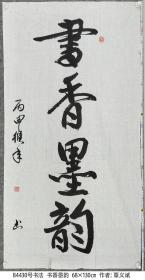 書香墨韵
丙申猴年
84430号书法 书香墨韵 68×130cm 作者:覃义斌